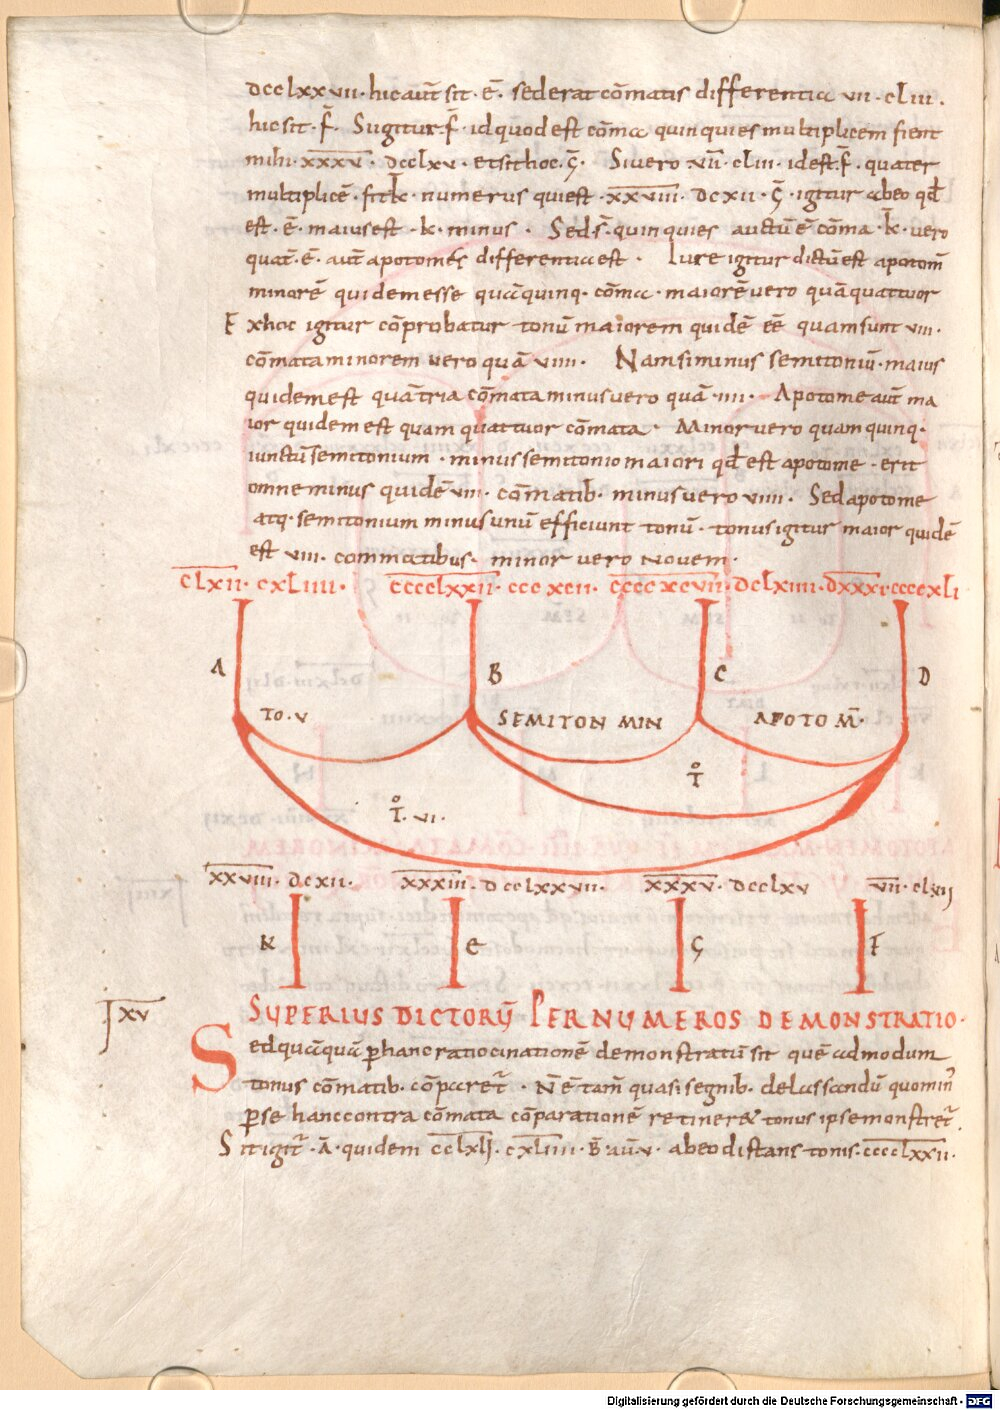 dcclxxvii· hic aūt sit · ē· sed erat cōmatis differentia vii · cliii ·
hic sit · f̄· Si igitur · f̄ · id quod est cōma quinquies multiplicem fient
mihi · xxxv · dcclxv · et sit hoc · ḡ· Si vero vii · cliii · id est · f̄ · quater
multiplicē · fit k̄ · numerus qui est · xxviii · dcxii · ḡ · igitur ab eo qd̄
est · ē · maius est · k · minus · Sed · ḡ · quinquies auctū ē cōma · k̄ · vero
quat̄ · ē · aut̄ apotomes differentia est · Iure igitur dictū est apotom̄
minorē quidem esse quā quinq· cōma · maiorē vero quā quattuor
Ex hoc igitur cōprobatur tonū maiorem quidē eē quam sunt viii ·
cōmata minorem vero quā viiii · Nam si minus semitoniū · maius
quidem est quā tria cōmata minus vero quā · iiii · Apotome aut̄ ma
ior quidem est quam quattuor cōmata · Minor vero quam quinq·
iunctū semitonium · minus semitonio maiori qd̄ est apotome · erit
omne minus quidē viii · cōmatib· minus vero viiii · Sed apotome
atq· semitonium minus unū efficiunt tonū · tonus igitur maior quidē
est viii · commatibus · minor vero novem ·
cclxii · cxliiii · cccclxxii · cccxcii · ccccxcvii · dclxiiii · dxxxi · ccccxli
A B C D
TO · V SEMITON MIN APOTO M̄ ·
T̊
T̊ · VI ·
xxviii · dcxii · xxxiii · dcclxxvii · xxxv · dcclxv vii · cliii
K E G F
xv SUPERIUS DICTORŪ PER NUMEROS DEMONSTRATIO ·
Sed quāquā p̄ hanc ratiocinationē demonstratū sit quē admodum
tonus cōmatib· cōparet̄ · N̄ ē tam̄ quasi segnib· delassandū quomin̄
p̄ se hanc contra cōmata cōparationē retinere & tonus ipse monstret̄ ·
Sit igit̄ · Ā · quidem cclxii · cxliiii · B̄ · aū · v · ab eo distans tonis · cccclxxii ·
Digitalisierung gefördert durch die Deutsche Forschungsgemeinschaft · DFG